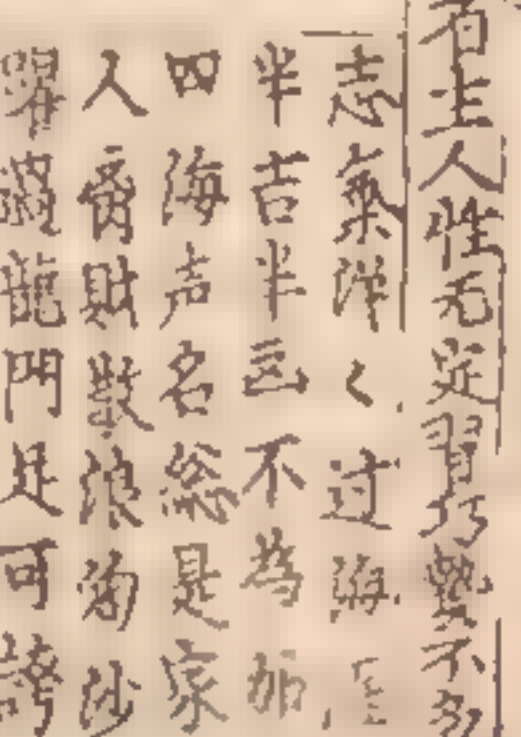 有主人性无定習巧藝不多
志氣洋く过海
半吉半凶不為加
四海声名総是家
人爲財散浪淘沙
躍過龍門是可誇